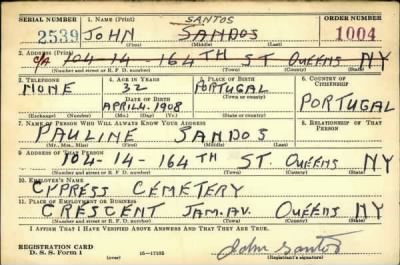 SERIAL NUMBER 1. NAME (Print) SANTOS ORDER NUMBER
2539 JOHN SANDOS 1004
(First) (Middle) (Last)
2. ADDRESS (Print)
C/A 104-14-164TH ST QUEENS NY
(Number and street or R. F. D. number) (Town) (County) (State)
3. TELEPHONE 4. AGE IN YEARS 5. PLACE OF BIRTH 6. COUNTRY OF CITIZENSHIP
NONE 32 PORTUGAL
DATE OF BIRTH (Town or county)
APRIL 4. 1908 PORTUGAL
(Exchange) (Number) (Mo.) (Day) (Yr.) (State or country)
7. NAME OF PERSON WHO WILL ALWAYS KNOW YOUR ADDRESS 8. RELATIONSHIP OF THAT PERSON
PAULINE SANDOS
(Mr., Mrs., Miss) (First) (Middle) (Last)
9. ADDRESS OF THAT PERSON
104-14-164TH ST. QUEENS NY
(Number and street or R. F. D. number) (Town) (County) (State)
10. EMPLOYER'S NAME
CYPRESS CEMETERY
11. PLACE OF EMPLOYMENT OR BUSINESS
CRESCENT JAM. AV. QUEENS NY
(Number and street or R. F. D. number) (Town) (County) (State)
I AFFIRM THAT I HAVE VERIFIED ABOVE ANSWERS AND THAT THEY ARE TRUE.
REGISTRATION CARD
D. S. S. Form 1 16-17105 John Santos
(Registrant's signature)